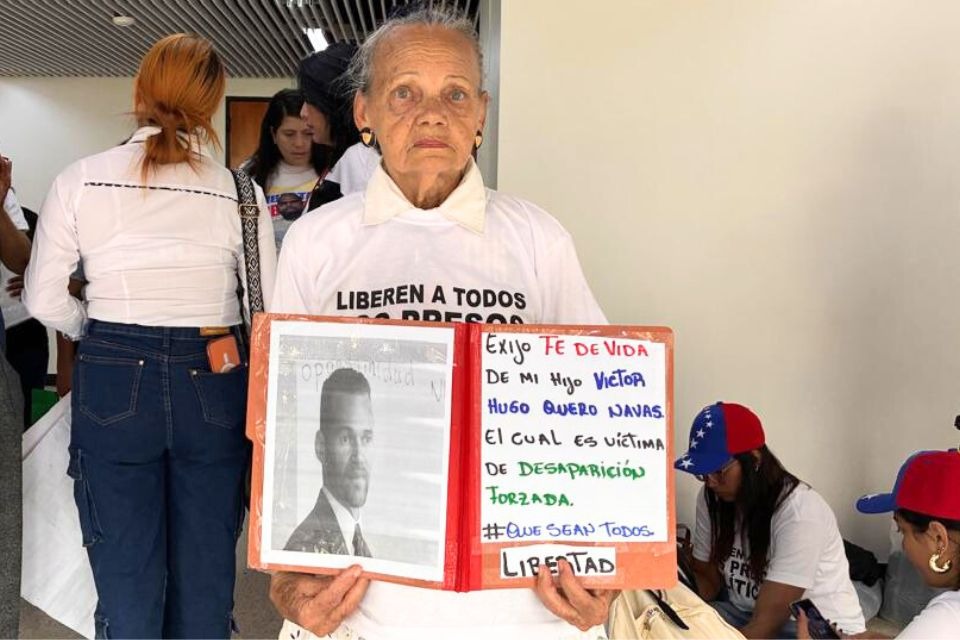 LIBEREN A TODOS
LOS PRESOS
oportunidad
EXIJO FE DE VIDA
DE MI HIJO VICTOR
HUGO QUERO NAVAS.
El CUAL ES VÍCTIMA
DE DESAPARICIÓN
FORZADA.
#QUE SEAN TODOS.
LIBERTAD